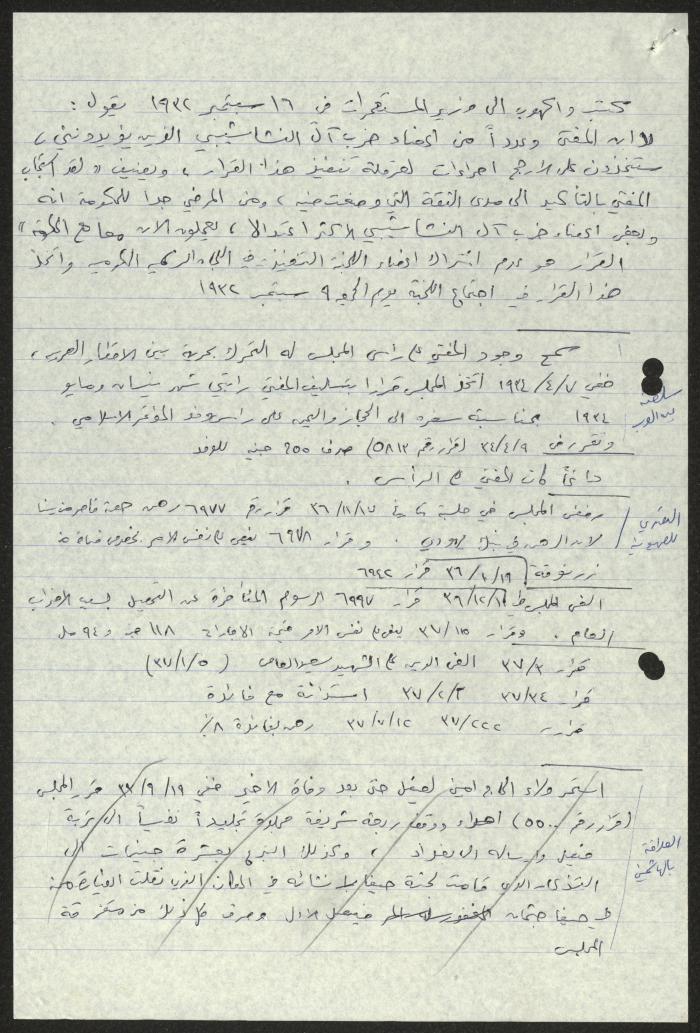 مكتب واكهوب الى وزير المستعمرات في ١٦ سبتمبر ١٩٣٢ يقول :
لا ان المفتي وعدداً من اعضاء حزب آل النشاشيبي الذين يؤيدونني ،
ستتخذون على الارجح اجراءات لعرقلة تنفيذ هذا القرار ، ويضيف " لقد استجاب
المفتي بالتأكيد الى مدى الثقة التي وضعت فيه ، ومن المرضي جدا للحكومة انه
وبعض اعضاء حزب آل النشاشيبي الاكثر اعتدالا ، يعملون الآن معا مع الحكومة "
القرار هو عدم اشتراك اعضاء اللجنة التنفيذية في اللجان الرسمية الحكومية واتخذ
هذا القرار في اجتماع اللجنة يوم الجمعة ٩ سبتمبر ١٩٣٢
سمح وجود المفتي على رأس المجلس له التحرك بحرية بين الاقطار العربية ،
ففي ١٩٣٤/٤/٧ اتخذ المجلس قرارا بتسليف المفتي راتبي شهر نيسان ومايو
١٩٣٤ بمناسبة سفره الى الحجاز واليمن على رأس وفد المؤتمر الاسلامي .
وتقرر في ٣٤/٤/٩ (قرار رقم ٥٨١٣) صرف ٢٥٥ جنيه للوفد
دائماً كان المفتي على الرأس .
رفض المجلس في جلسة ٣٦/١١/١٧ قرار رقم ٦٩٧٧ رهن حصة
في بنك يهودي . وقرار ٦٩٧٨ ينص على نفس الامر بخصوص
٣٦/١٠/١٩ قرار ٦٩٤٢
الغى المجلس ٣٦/١٢/ قرار ٦٩٩٧ الرسوم المتأخرة عن التحصيل بسبب الاضراب
العام . وقرار ٣٧/١٥ ينص على نفس الامر قيمة الاعفاءات ١١٨ جنيه و ٩٤ مل
قرار ٣٧/٣ الغى الدين على الشهيد سعيد العاص (٣٧/١/٥)
قرار ٣٧/٣٤ ٣٧/٢/٢ استدانة مع فائدة
قرار ٣٧/٢٢٢ ٣٧/٧/١٢ رهن بفائدة ٨٪
استمر ولاء الحاج امين لفيصل حتى بعد وفاة الاخير ففي ٣٣/٩/١٩ قرر المجلس
(قرار رقم ٥٥٠٠) اهداء ووقف ربعة شريفة مجلدة تجليداً نفيساً الى تربة
فيصل وارساله الى بغداد ، وكذلك التبرع بعشرة جنيهات الى
التذكار الذي قامت لجنة حيفا بانشائه في المكان الذي نقلت الطيارة منه
في حيفا جثمان المغفور له فيصل الاول وصرف كل ذلك من متفرقة
المجلس
العلاقة
بالهاشميين